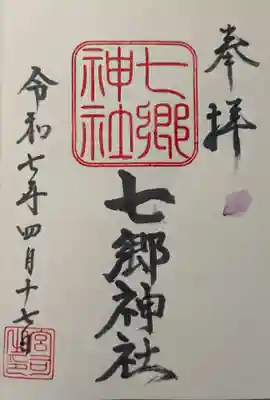 奉拝
七郷
神社
七郷神社
令和七年四月十七日